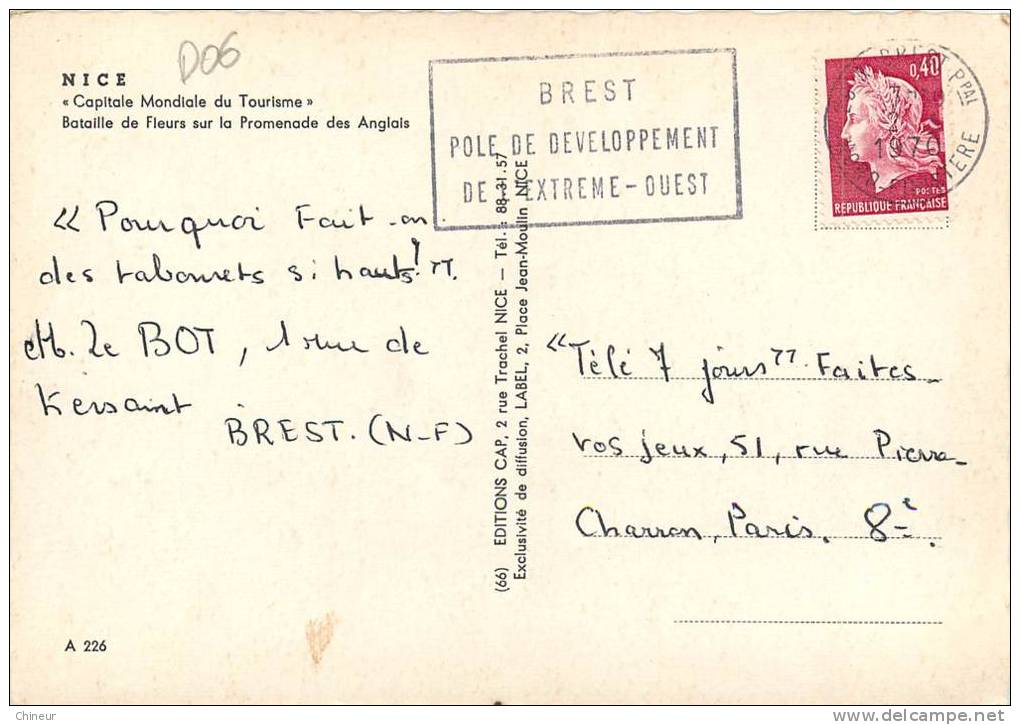 D06
NICE
« Capitale Mondiale du Tourisme »
Bataille de Fleurs sur la Promenade des Anglais
BREST
POLE DE DEVELOPPEMENT
DE L'EXTREME-OUEST
BREST Ppal
1970
FINISTERE
0,40
POSTES
REPUBLIQUE FRANÇAISE
« Pourquoi Fait-on
des tabourets si hauts! ».
M. Le BOT, 1 rue de
Kersaint
BREST. (N-F)
(66) EDITIONS CAP, 2 rue Trachel NICE — Tél. : 88-31.57
Exclusivité de diffusion, LABEL, 2, Place Jean-Moulin NICE
« Télé 7 jours » Faites-
vos jeux, 51, rue Pierre-
Charron, Paris. 8è.
A 226
Chineur
delcampe.net